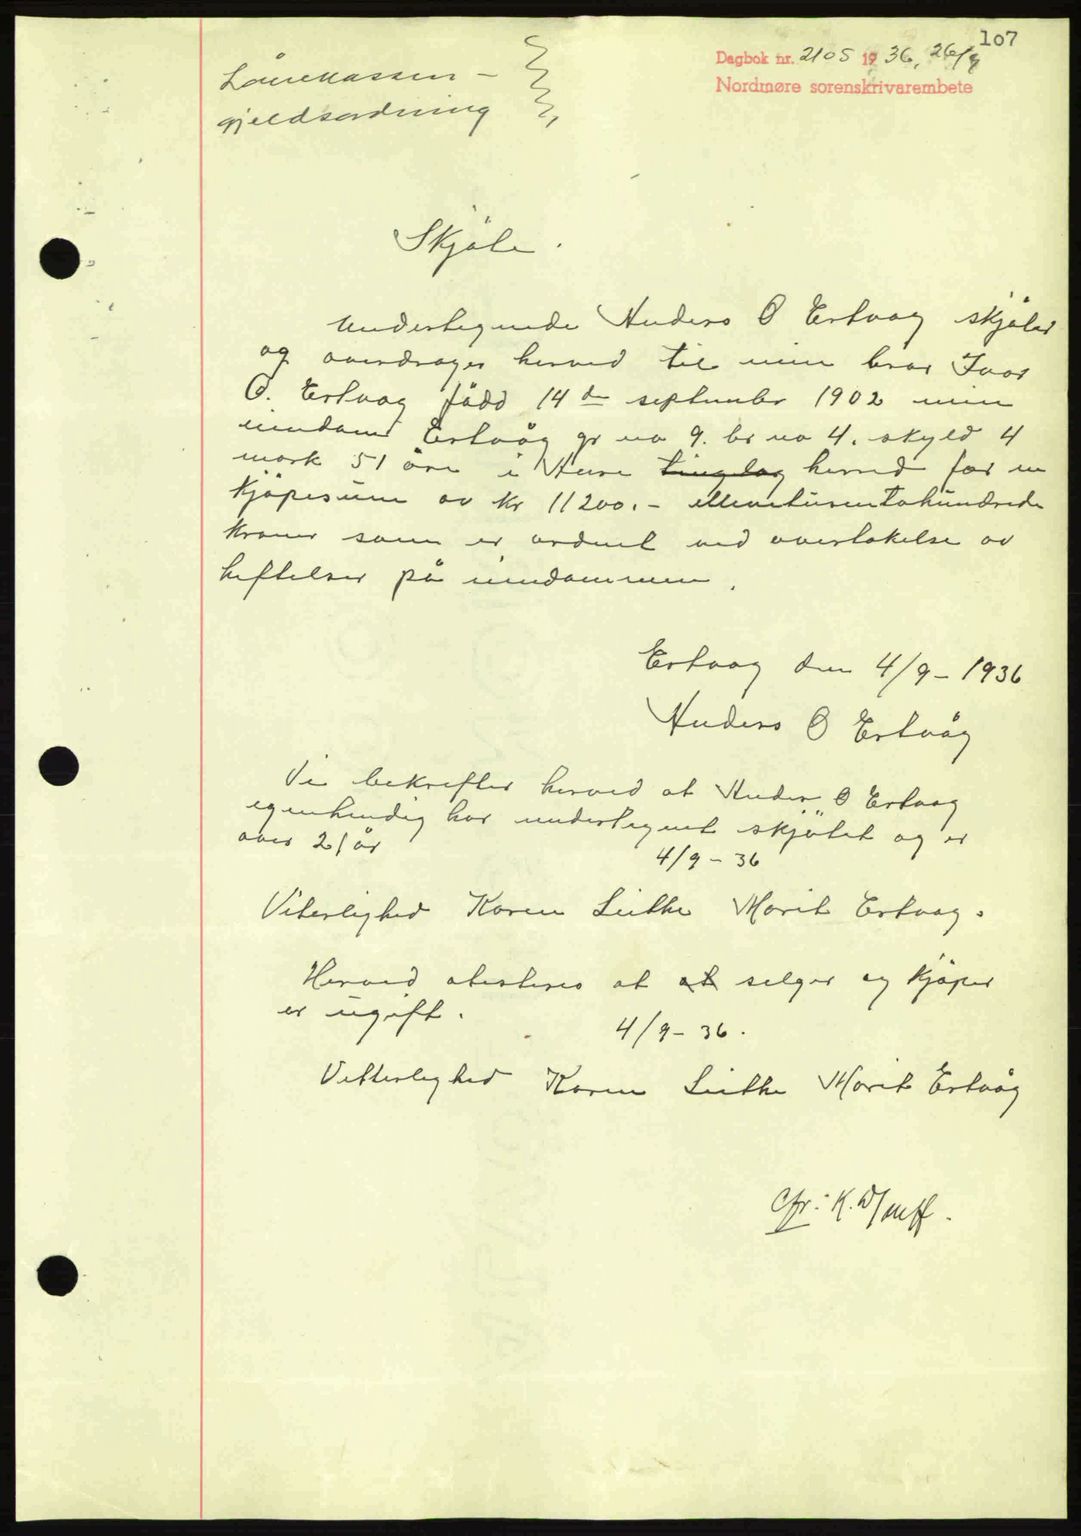 107
Dagbok nr. 2105 1936, 26/9
Nordmøre sorenskrivarembete
Lånekassen –
gjeldsordning
Skjöte.
Undertegnede Anders O Ertvaag skjöter
og overdrager herved til min bror Ivar
O. Ertvaag född 14 de september 1902 min
eiendom Ertvåg gr no 9. br no 4. skyld 4
mark 51 öre i Aure tinglag herred for en
kjöpesum av kr 11200.- ellevetusentohundrede
kroner som er ordnet ved overtakelse av
heftelser på eiendommen.
Ertvaag den 4/9 – 1936
Anders O Ertvåg
Vi bekrefter herved at Anders O Ertvaag
egenhendig har undertegnet skjötet og er
over 21 år
4/9 – 36
Viterlighed Karen Leithe Marit Ertvaag.
Herved atesteres at at selger og kjöper
er ugift.
4/9 – 36.
Vitterlighed Karen Leithe Marit Ertvåg
Cfr: K.